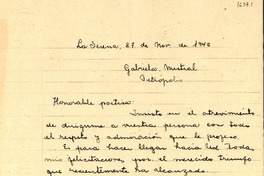 1637.1
La Serena, 27 de Nov. de 1945
Gabriela Mistral
Petropolis
Honorable poetisa:
Insisto en el atrevimiento
de dirigirme a vuestra persona con todo
el respeto y admiración que le profeso.
Es para hacer llegar hacia Ud. todas
mis felicitaciones por el merecido triunfo
que recientemente ha alcanzado